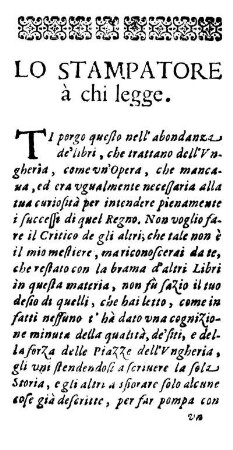 LO STAMPATORE
à chi legge.
TI porgo questo nell'abondanza
de'libri, che trattano dell'Vn-
gheria, come vn'Opera, che manca-
ua, ed era vgualmente necessaria alla
tua curiosità per intendere pienamente
i successi di quel Regno. Non voglio fa-
re il Critico de gli altri, che tale non è
il mio mestiere, mariconoscerai da te,
che restato con la brama d'altri Libri
in questa materia, non fù sazio il tuo
desio di quelli, che hai letto, come in
fatti nessuno t'hà dato vna cognizio-
ne minuta della qualità, de'siti, e del-
la forza delle Piazze dell'Vngheria,
gli vni stendendosi a scriuere la sola
Storia, e gli altri a sfiorare solo alcune
cose già descritte, per far pompa con
vn